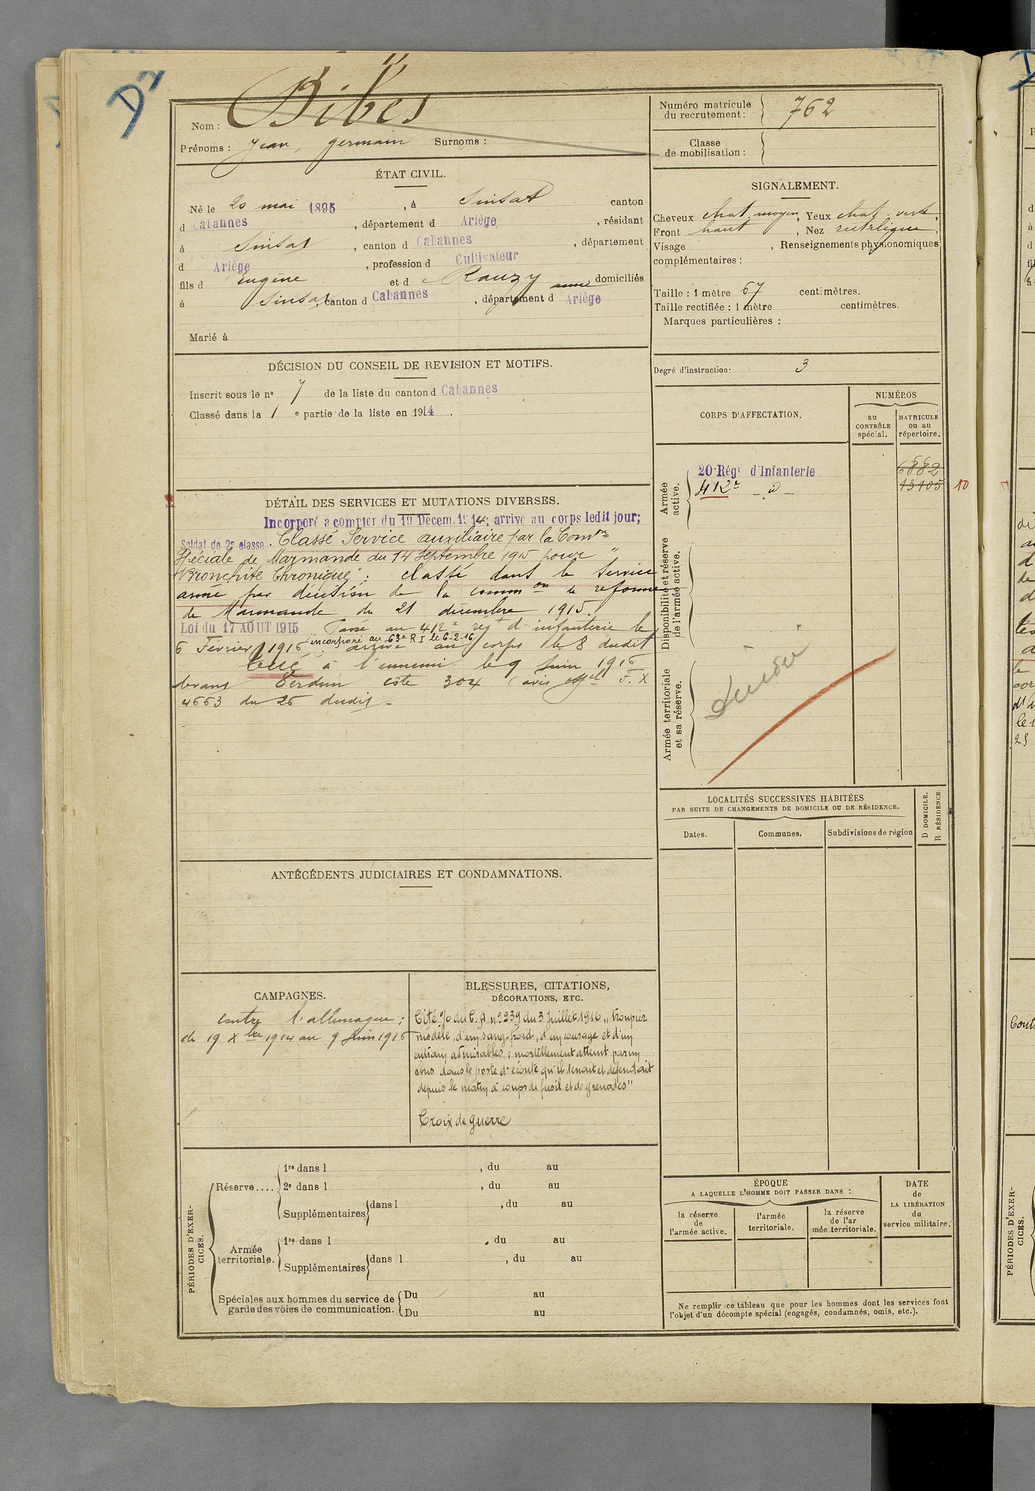 D7
Nom : Bibes
Prénoms : Jean, germain Surnoms :
Numéro matricule du recrutement : 762
Classe de mobilisation :
ÉTAT CIVIL.
Né le 20 mai 1895, à Sinsat canton
d Cabannes, département d Ariège, résidant
à Sinsat, canton d Cabannes, département
d Ariège, profession d Cultivateur
fils d Eugène et d Rauzy anne domiciliés
à Sinsat canton d Cabannes, département d Ariège
Marié à
SIGNALEMENT.
Cheveux chat. moyen, Yeux chat. verts,
Front haut, Nez rectiligne,
Visage , Renseignements physionomiques
complémentaires :
Taille : 1 mètre 67 centimètres.
Taille rectifiée : 1 mètre centimètres.
Marques particulières :
Degré d'instruction : 3
DÉCISION DU CONSEIL DE REVISION ET MOTIFS.
Inscrit sous le n° 7 de la liste du canton d Cabannes
Classé dans la 1 e partie de la liste en 1914.
CORPS D'AFFECTATION.
NUMÉROS
au CONTRÔLE spécial.
MATRICULE ou au répertoire.
Armée active.
20 Régt d'Infanterie
412e - d -
6882
13105 10
Disponibilité et réserve de l'armée active.
Armée territoriale et sa réserve.
DÉTAIL DES SERVICES ET MUTATIONS DIVERSES.
Incorporé a compter du 19 Décem. 1914, arrivé au corps ledit jour;
Soldat de 2e classe. Classé Service auxiliaire par la Comon
Spéciale de Marmande du 14 Septembre 1915 pour "
Bronchite chronique"; classé dans le service
armé par décision de la common de réforme
de Marmande du 21 décembre 1915.
Loi du 17 AOUT 1915 Passé au 412e regt d'infanterie le
incorporé au 63e R I le 6-2-16
6 Février 1916, arrivé au corps le 8 dudit
Tué à l'ennemi le 9 Juin 1916
devant Verdun côte 304 (avis offel F. X
4663 du 26 dudit -
LOCALITÉS SUCCESSIVES HABITÉES
PAR SUITE DE CHANGEMENTS DE DOMICILE OU DE RÉSIDENCE.
Dates. Communes. Subdivisions de région
D DOMICILE.
R RÉSIDENCE
ANTÉCÉDENTS JUDICIAIRES ET CONDAMNATIONS.
CAMPAGNES.
contre l'allemagne;
du 19 Xbre 1914 au 9 Juin 1916
BLESSURES, CITATIONS,
DÉCORATIONS, ETC.
Cité % du C. A. n° 239 du 3 Juillet 1916 "troupier
modèle, d'un sang-froid, d'un courage et d'un
entrain admirables; mortellement atteint par un
obus dans le poste d'écoute qu'il tenait et défendait
depuis le matin à coups de fusil et de grenades"
Croix de guerre
PÉRIODES D'EXERCICES.
Réserve....
1re dans l , du au
2e dans l , du au
Supplémentaires dans l , du au
Armée territoriale.
1re dans l , du au
Supplémentaires dans l , du au
Spéciales aux hommes du service de garde des voies de communication.
Du au
Du au
ÉPOQUE
A LAQUELLE L'HOMME DOIT PASSER DANS :
la réserve de l'armée active.
l'armée territoriale.
la réserve de l'armée territoriale.
DATE de LA LIBÉRATION du service militaire.
Ne remplir ce tableau que pour les hommes dont les services font
l'objet d'un décompte spécial (engagés, condamnés, omis, etc.).